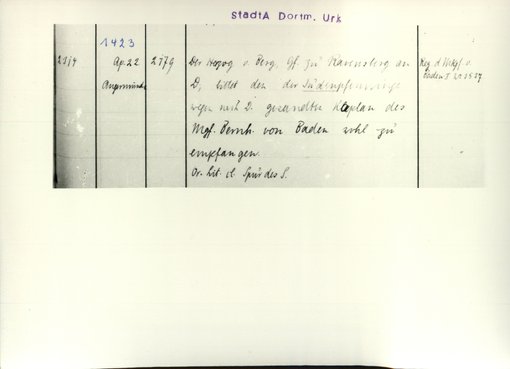 StadtA Dortm. Urk
1423
Ap. 22 2179 Der Herzog v. Berg, Gf. zu Ravensberg an
Angermünde D, bittet den der Judenpfennige
wegen nach D. gesandten Kaplan des
Mgf. Bernh. von Baden wohl zu
empfangen.
Or. lit. cl. Spur des S.
Reg. d. Mkgf. v.
Baden I